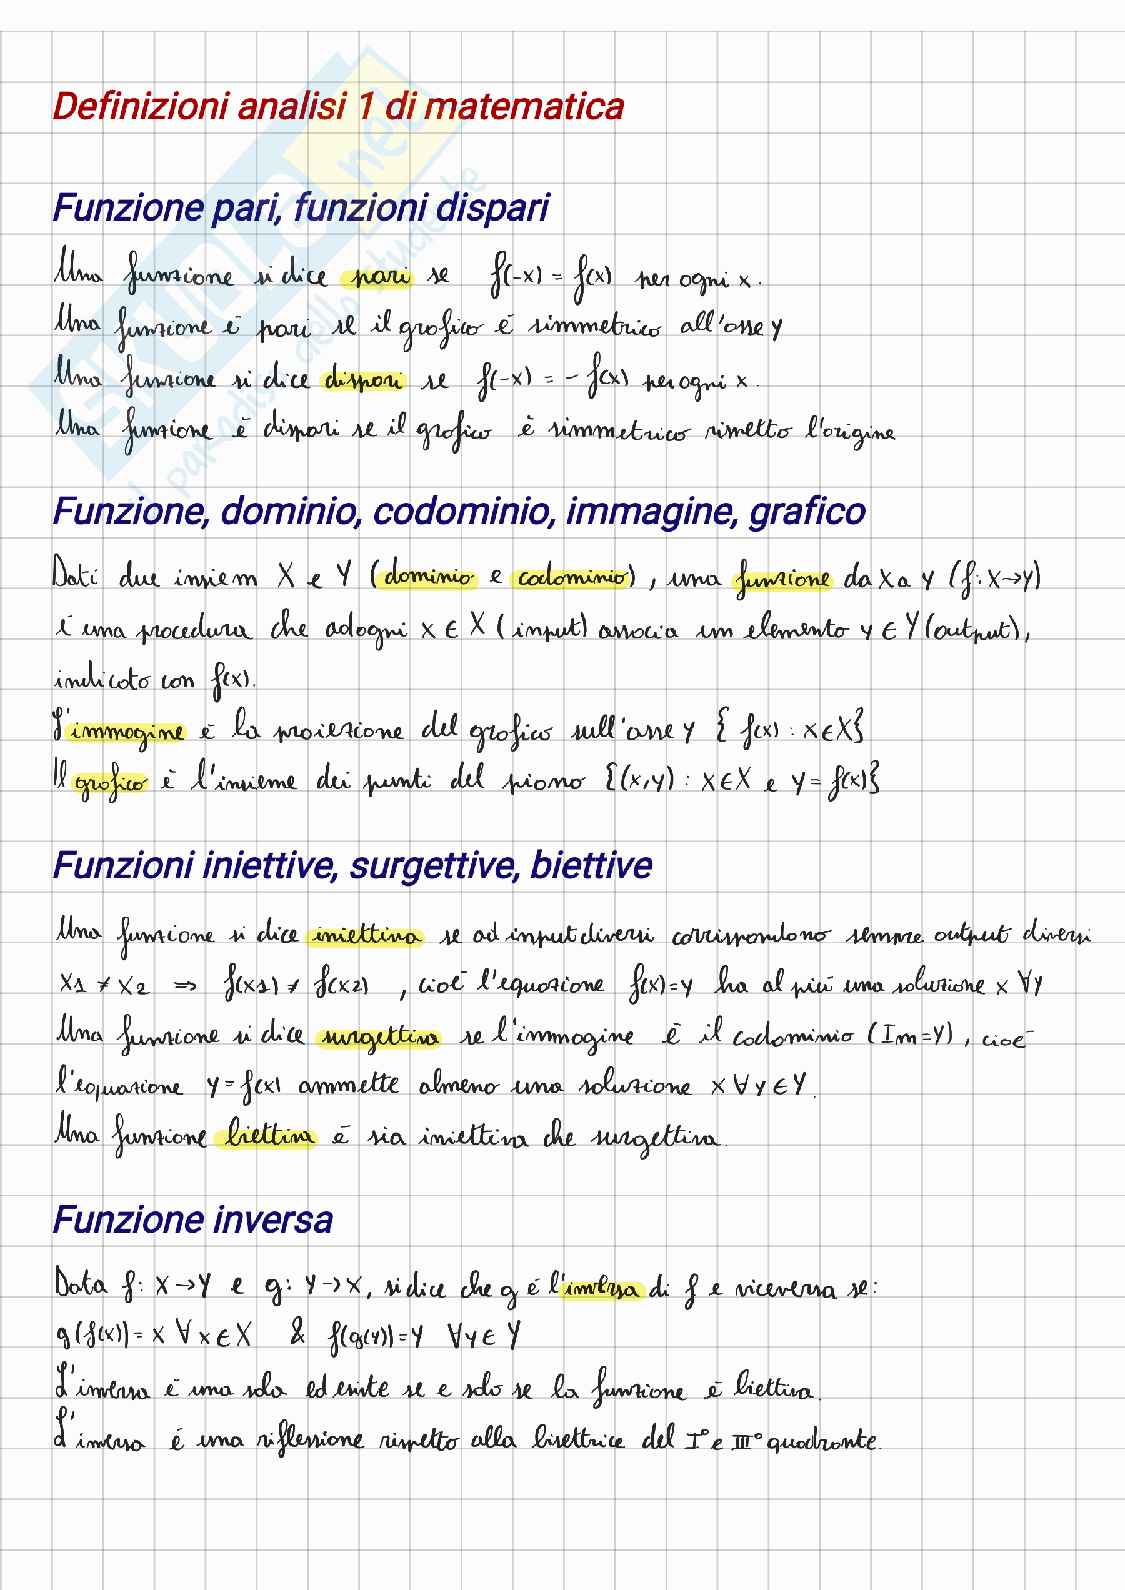 Definizioni analisi 1 di matematica
Funzione pari, funzioni dispari
Una funzione si dice pari se f(-x) = f(x) per ogni x.
Una funzione è pari se il grafico è simmetrico all'asse y
Una funzione si dice dispari se f(-x) = - f(x) per ogni x.
Una funzione è dispari se il grafico è simmetrico rispetto l'origine
Funzione, dominio, codominio, immagine, grafico
Dati due insiem X e Y (dominio e codominio), una funzione da X a Y (f: X→Y)
è una procedura che ad ogni x ∈ X (input) associa un elemento y ∈ Y (output),
indicato con f(x).
L'immagine è la proiezione del grafico sull'asse y { f(x) : x ∈ X}
Il grafico è l'insieme dei punti del piano {(x,y) : x ∈ X e y = f(x)}
Funzioni iniettive, surgettive, biettive
Una funzione si dice iniettiva se ad input diversi corrispondono sempre output diversi
x1 ≠ x2 ⇒ f(x1) ≠ f(x2) , cioè l'equazione f(x)=y ha al più una soluzione x ∀y
Una funzione si dice surgettiva se l'immagine è il codominio (Im=Y), cioè
l'equazione y = f(x) ammette almeno una soluzione x ∀ y ∈ Y.
Una funzione biettiva è sia iniettiva che surgettiva.
Funzione inversa
Data f: X→Y e g: Y→X, si dice che g è l'inversa di f e viceversa se:
g(f(x)) = x ∀ x ∈ X & f(g(y)) = y ∀y ∈ Y
L'inversa è una sola ed esiste se e solo se la funzione è biettiva.
L'inversa è una riflessione rispetto alla bisettrice del I° e III° quadrante.
SKUOLA.net
il paradiso dello studente